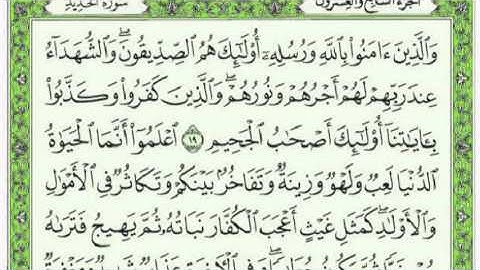 الجزء السابع والعشرون سورة الحديد
وَٱلَّذِينَ ءَامَنُوا۟ بِٱللَّهِ وَرُسُلِهِۦٓ أُو۟لَٰٓئِكَ هُمُ ٱلصِّدِّيقُونَ ۖ وَٱلشُّهَدَآءُ
عِندَ رَبِّهِمْ لَهُمْ أَجْرُهُمْ وَنُورُهُمْ ۖ وَٱلَّذِينَ كَفَرُوا۟ وَكَذَّبُوا۟
بِـَٔايَٰتِنَآ أُو۟لَٰٓئِكَ أَصْحَٰبُ ٱلْجَحِيمِ ١٩ ٱعْلَمُوٓا۟ أَنَّمَا ٱلْحَيَوٰةُ
ٱلدُّنْيَا لَعِبٌ وَلَهْوٌ وَزِينَةٌ وَتَفَاخُرٌۢ بَيْنَكُمْ وَتَكَاثُرٌ فِى ٱلْأَمْوَٰلِ
وَٱلْأَوْلَٰدِ ۖ كَمَثَلِ غَيْثٍ أَعْجَبَ ٱلْكُفَّارَ نَبَاتُهُۥ ثُمَّ يَهِيجُ فَتَرَىٰهُ